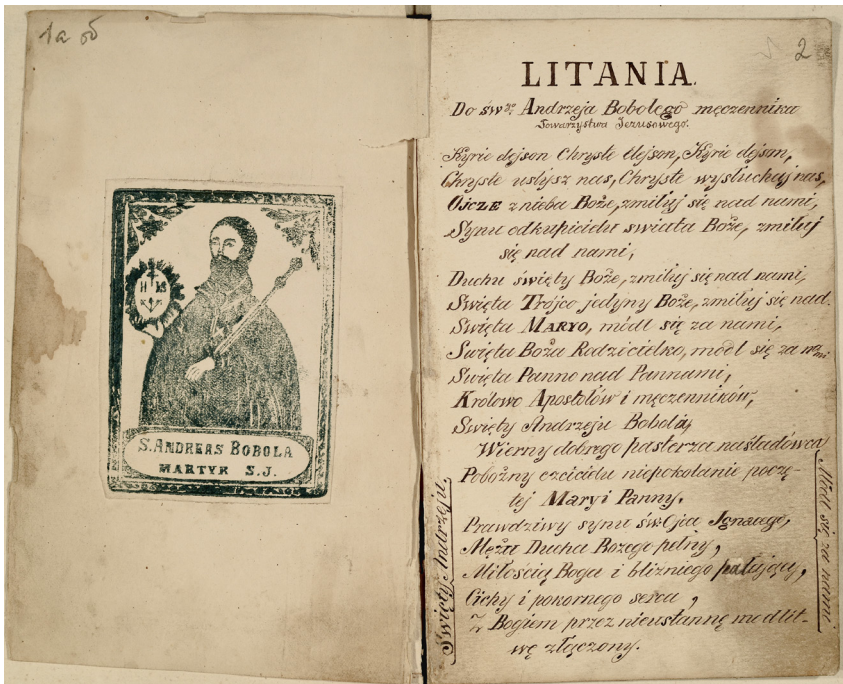 2
IHS
S. ANDREAS BOBOLA
MARTYR S.J.
LITANIA.
Do św.go Andrzeja Bobolego męczennika
Towarzystwa Jezusowego.
Kyrie elejson Chryste Elejson, Kyrie elejson,
Chryste usłysz nas, Chryste wysłuchaj nas,
OJCZE z nieba Boże, zmiłuj się nad nami,
Synu odkupicielu świata Boże, zmiłuj
się nad nami,
Duchu święty Boże, zmiłuj się nad nami,
Święta Trójco jedyny Boże, zmiłuj się nad.
Święta MARYO, módl się za nami,
Święta Boża Rodzicielko, módl się za nami
Święta Panno nad Pannami,
Królowo Apostołów i męczenników,
Święty Andrzeju Bobola,
Wierny dobrego pasterza naśladówca
Pobożny czcicielu niepokalanie poczę-
tej Maryi Panny.
Prawdziwy synu św. Ojca Ignacego,
Mężu Ducha Bożego pełny,
Miłością Boga i bliźniego pałający,
Cichy i pokornego serca,
Z Bogiem przez nieustanną modlit-
wę złączony.
Święty Andrzeju,
Módl się za nami